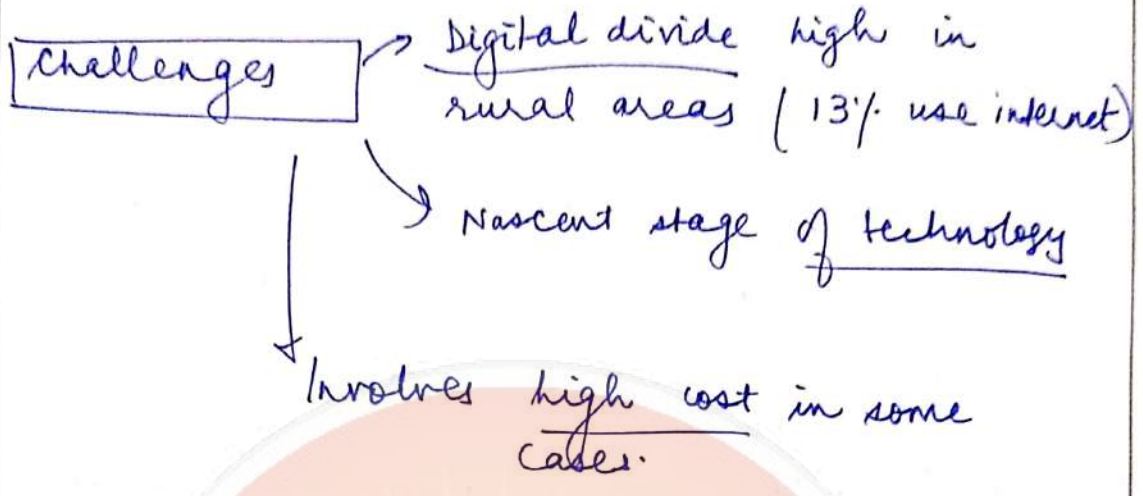 Challenges
Digital divide high in
rural areas (13% use internet)
Nascent stage of technology
Involves high cost in some
cases.